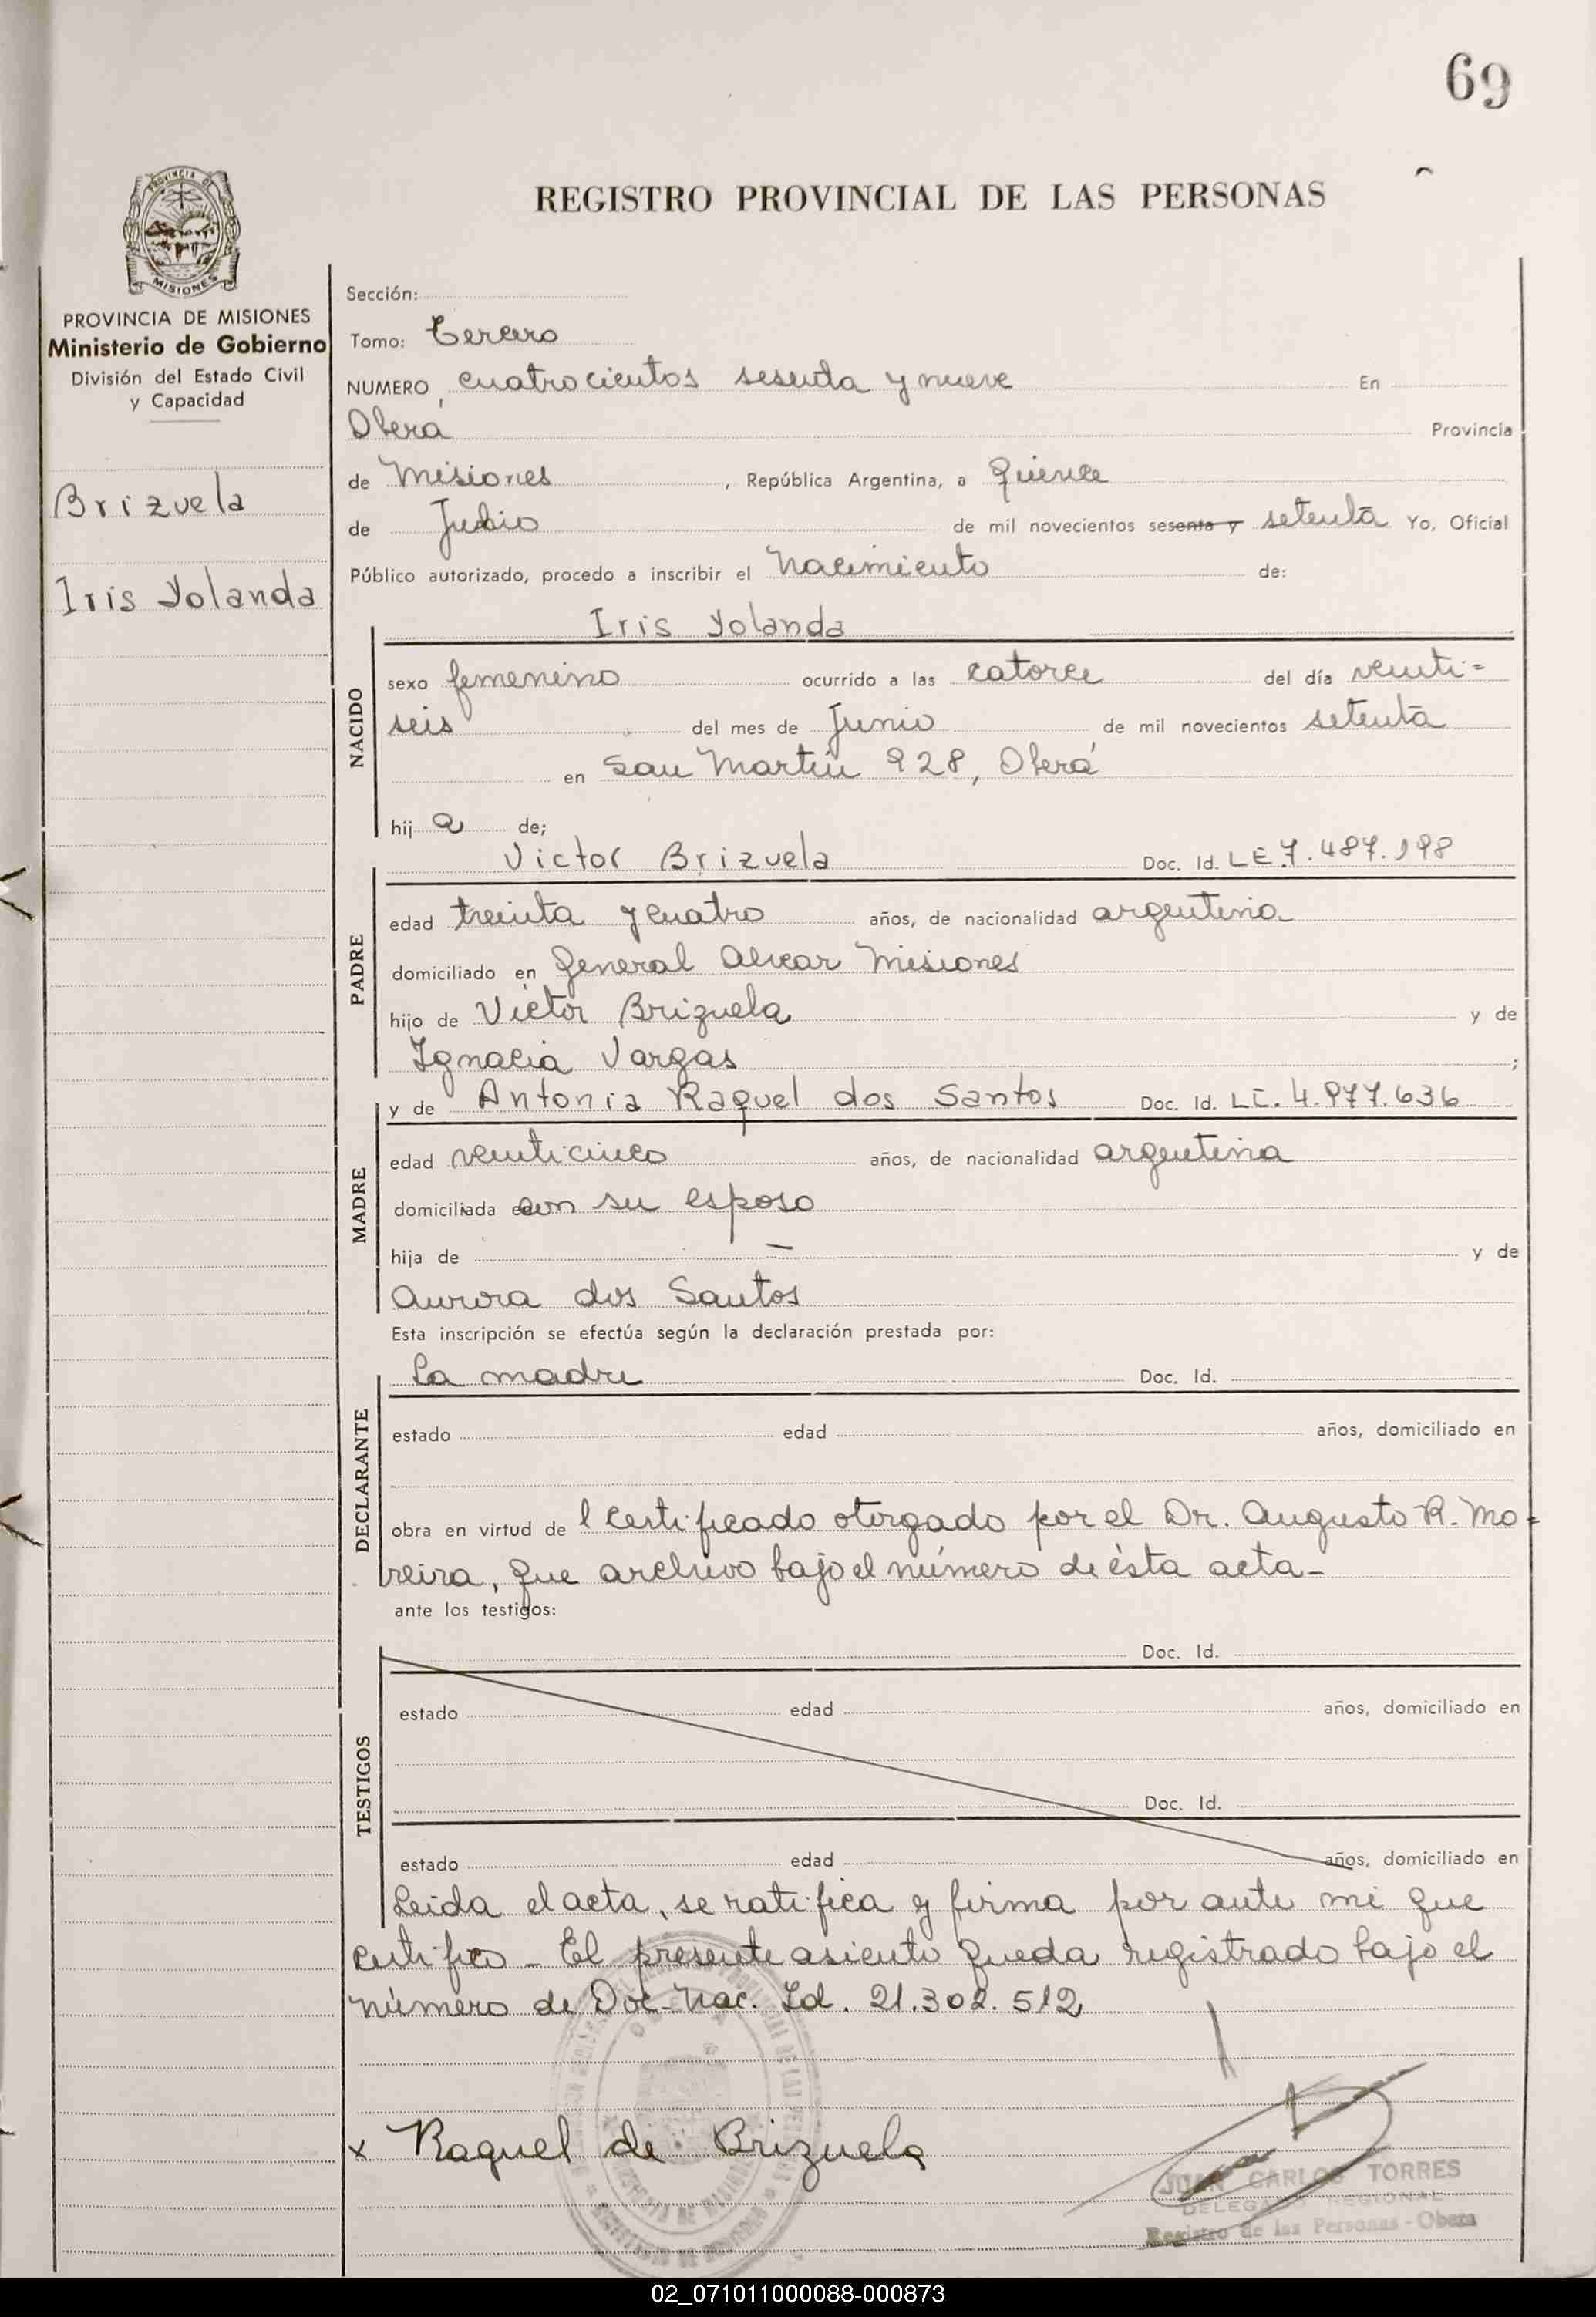 69
REGISTRO PROVINCIAL DE LAS PERSONAS
PROVINCIA DE MISIONES
PROVINCIA DE MISIONES
Ministerio de Gobierno
División del Estado Civil
y Capacidad
Brizuela
Iris Yolanda
Sección:
Tomo: Tercero
NUMERO cuatrocientos sesenta y nueve En
Oberá Provincia
de Misiones, República Argentina, a quince
de Julio de mil novecientos sesenta y setenta Yo, Oficial
Público autorizado, procedo a inscribir el Nacimiento de:
Iris Yolanda
NACIDO
sexo femenino ocurrido a las catorce del día veinti=
seis del mes de Junio de mil novecientos setenta
en San Martín 928, Oberá
hij a de;
Victor Brizuela Doc. Id. LE 7.487.198
PADRE
edad treinta y cuatro años, de nacionalidad argentina
domiciliado en General Alvear Misiones
hijo de Victor Brizuela y de
Ignacia Vargas ;
y de Antonia Raquel dos Santos Doc. Id. LC. 4.977.636
MADRE
edad veinticinco años, de nacionalidad argentina
domiciliada con su esposo
hija de — y de
Aurora dos Santos
Esta inscripción se efectúa según la declaración prestada por:
La madre Doc. Id.
DECLARANTE
estado edad años, domiciliado en
obra en virtud de l certificado otorgado por el Dr. Augusto R. Mo=
reira, que archivo bajo el número de ésta acta-
ante los testigos:
Doc. Id.
TESTIGOS
estado edad años, domiciliado en
Doc. Id.
estado edad años, domiciliado en
Leida el acta, se ratifica y firma por ante mi que
certifico - El presente asiento queda registrado bajo el
número de Doc. Nac. Id. 21.302.512
x Raquel de Brizuela
JUAN CARLOS TORRES
DELEGADO REGIONAL
Registro de las Personas - Obera
02_071011000088-000873